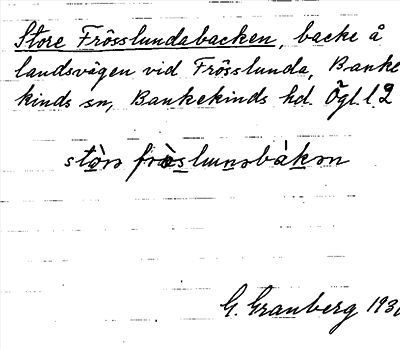 Store Frösslundabacken, backe å
landsvägen vid Frösslunda, Banke
kinds sn, Bankekinds hd. Ögl. l.
G. Granberg 193